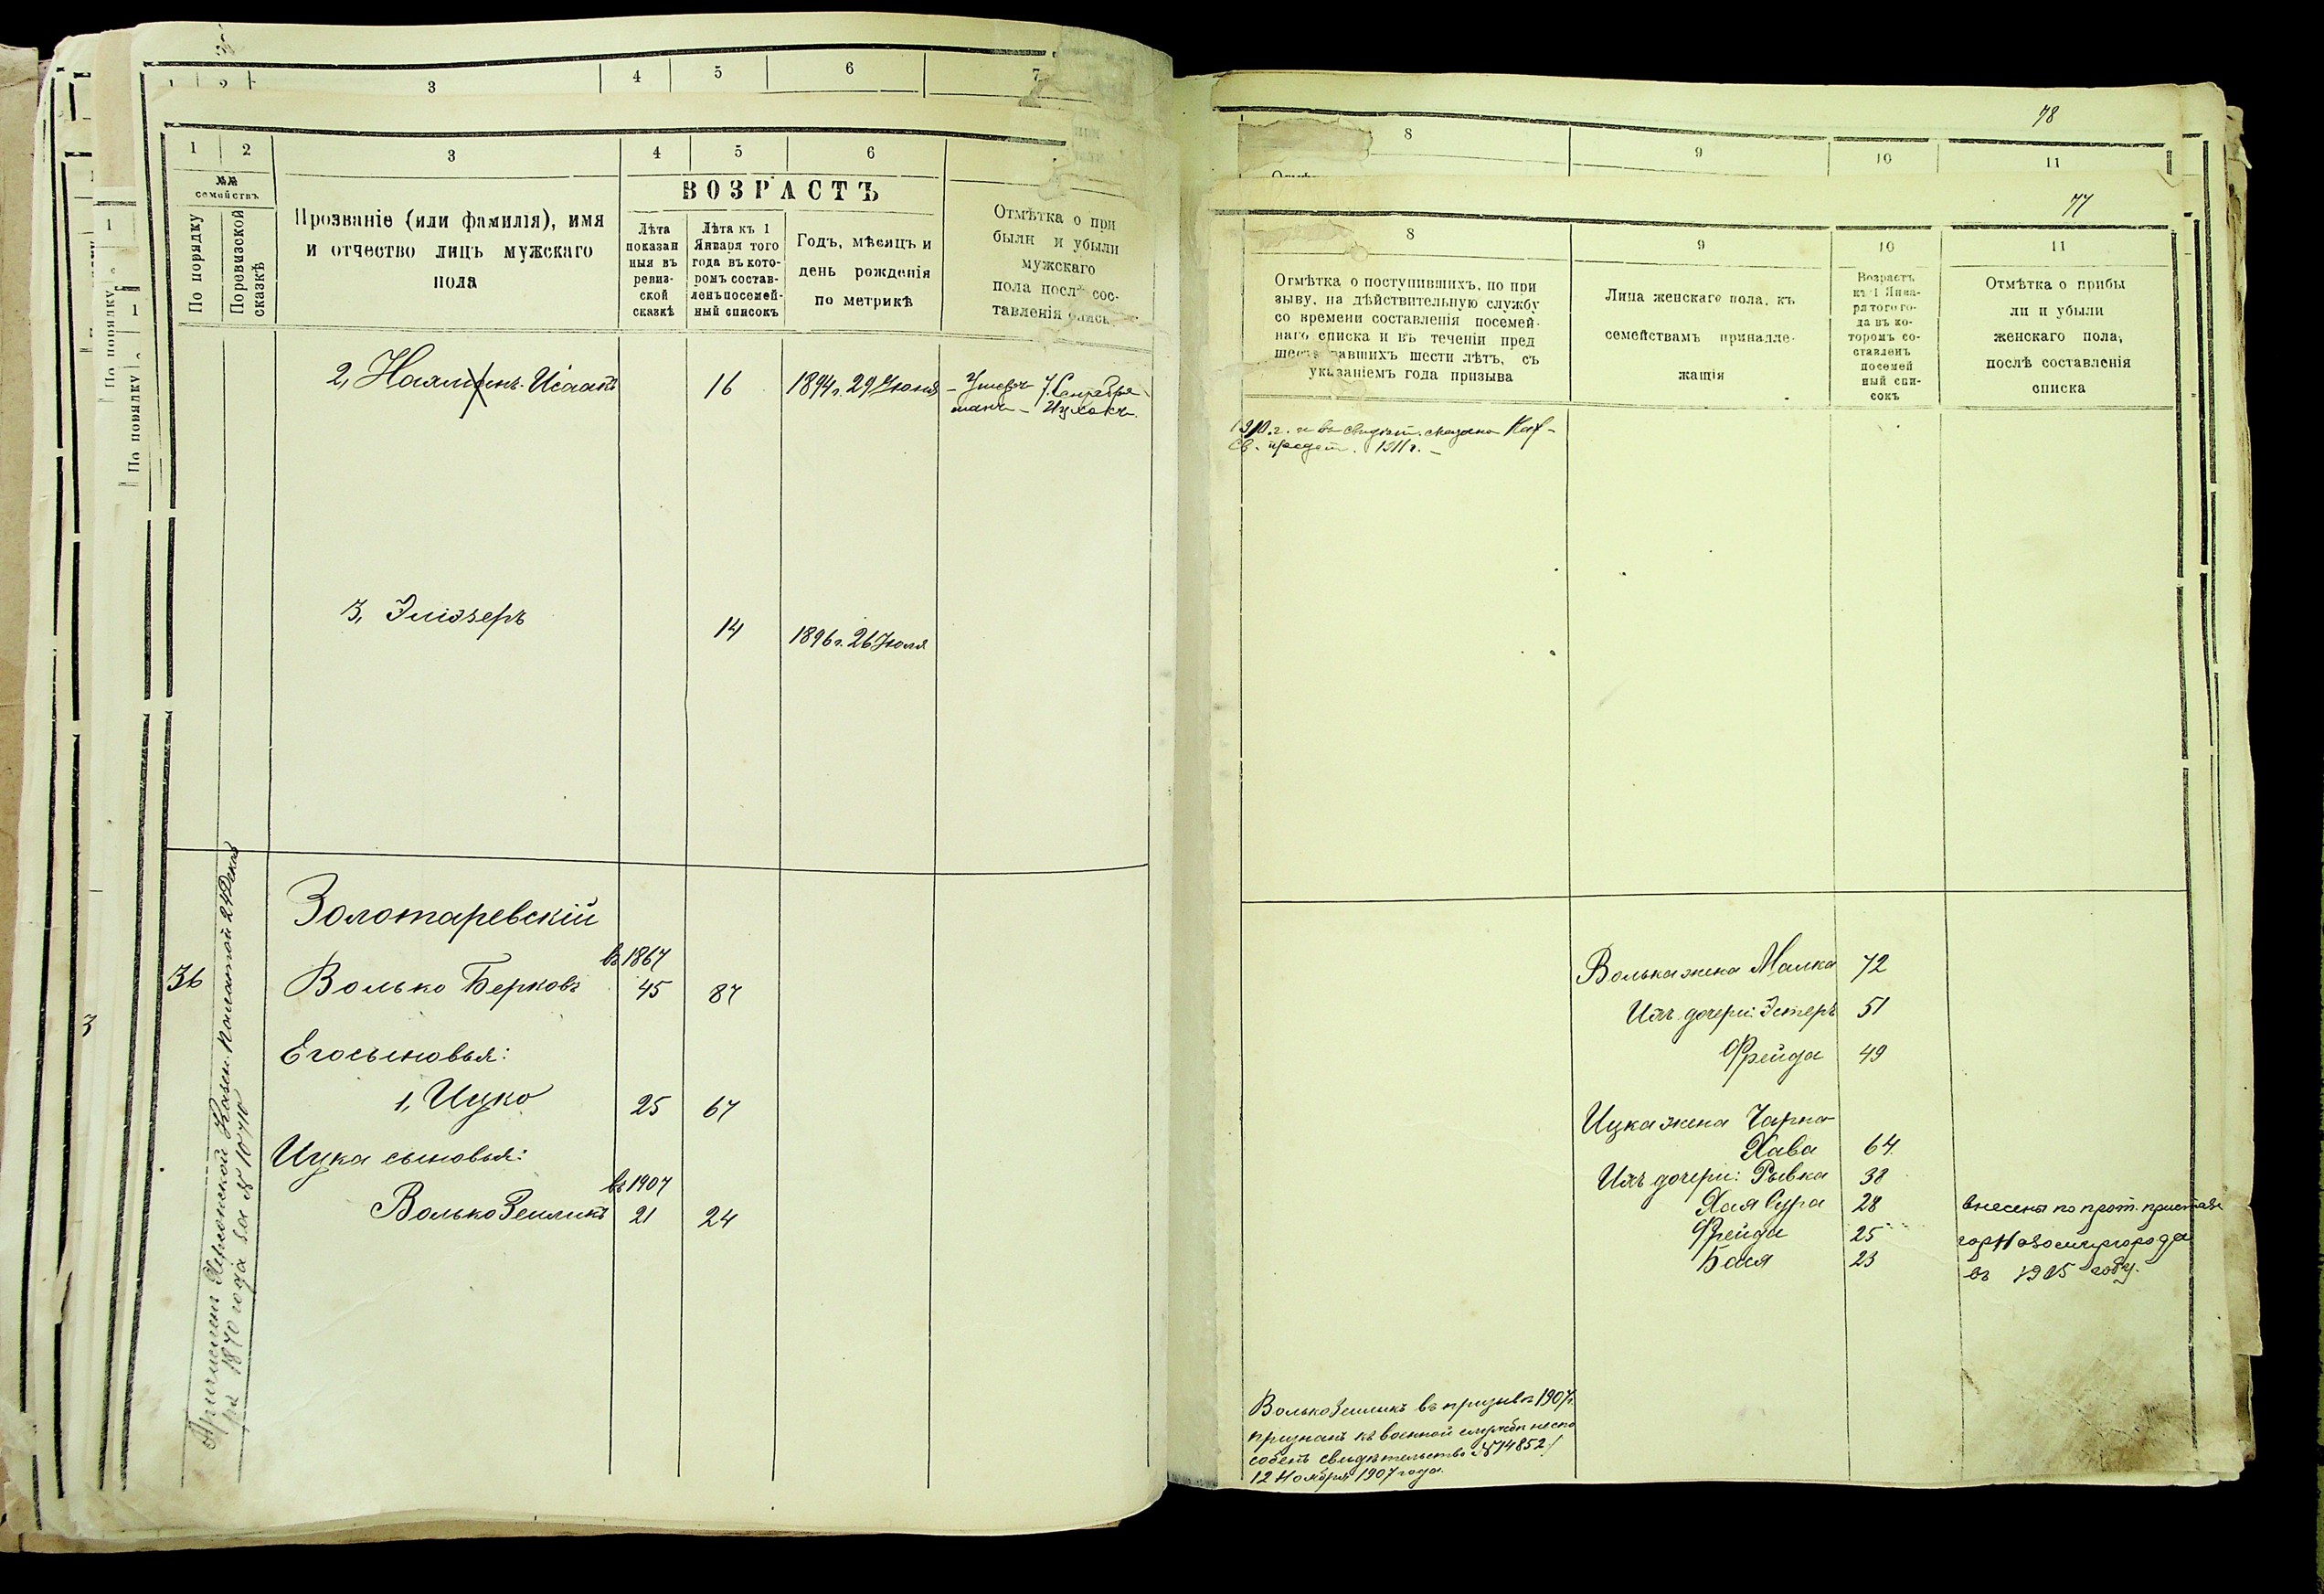 1 2 3 4 5 6 7
1 2 3 4 5 6
№№ семействъ
По порядку
По ревизской сказкѣ
Прозваніе (или фамилія), имя
и отчество лицъ мужскаго
пола
ВОЗРАСТЪ
Лѣта
показан
ныя въ
ревиз-
ской
сказкѣ
Лѣта къ 1
Января того
года въ кото-
ромъ состав-
ленъ посемей-
ный списокъ
Годъ, мѣсяцъ и
день рожденія
по метрикѣ
Отмѣтка о при
были и убыли
мужскаго
пола послѣ сос-
тавленія списк
По порядку
По порядку
1
1
2, Исаакъ 16 1894 г. 29 Іюня - 7 Сентября
3, Эліэзеръ 14 1896 г. 26 Іюля
3
Золотаревскій
въ 1867
36 Волько Берковъ 45 87
Его сыновья:
1, Ицко 25 67
Ицка сыновья:
въ 1907
Волько Зеиликъ 21 24
Причислен Херсонской Казен. Палатой 24 Декаб
ря 1870 года за № 10710
78
8 9 10 11
77
8 9 10 11
Отмѣтка о поступившихъ, по при
зыву, на дѣйствительную службу
со времени составленія посемей-
наго списка и въ теченіи пред
шест вавшихъ шести лѣтъ, съ
указаніемъ года призыва
Лица женскаго пола, къ
семействамъ принадле-
жащія
Возрастъ
къ 1 Янва-
ря того го-
да въ ко-
торомъ со-
ставленъ
посемей
ный спи-
сокъ
Отмѣтка о прибы
ли и убыли
женскаго пола,
послѣ составленія
списка
1910 г. и въ
1911 г. -
Волька жена Малка 72
Ихъ дочери: Эстеръ 51
Фрейда 49
Ицка жена Чарна
Хава 64
Ихъ дочери: Рывка 38
Хая Сура 28 внесены по прот. пристава
Фрейда 25 гор Новомиргорода
Бася 23 въ 1905 году.
Волько Зеиликъ въ призывъ 1907 г.
признанъ къ военной службѣ неспо
собенъ свидѣтельство № 14852/
12 Ноября 1907 года.